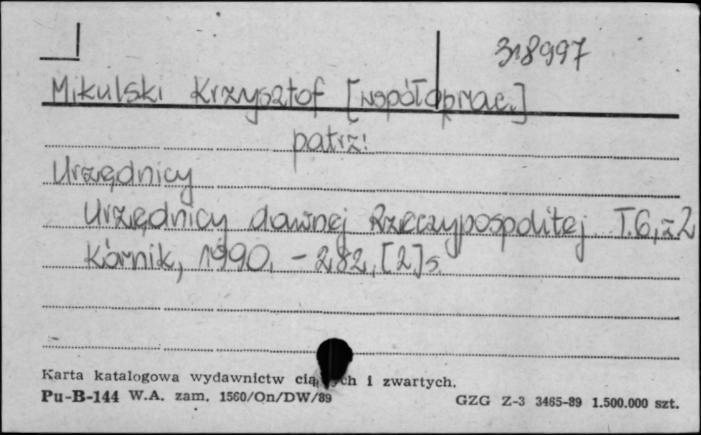 318997
Mikulski Krzysztof [współoprac.]
patrz:
Urzędnicy
Urzędnicy dawnej Rzeczypospolitej T.6, z.2
Kórnik, 1990. - 282, [2] s.
Karta katalogowa wydawnictw ych i zwartych.
Pu-B-144 W.A. zam. 1560/On/DW/89 GZG Z-3 3465-89 1.500.000 szt.